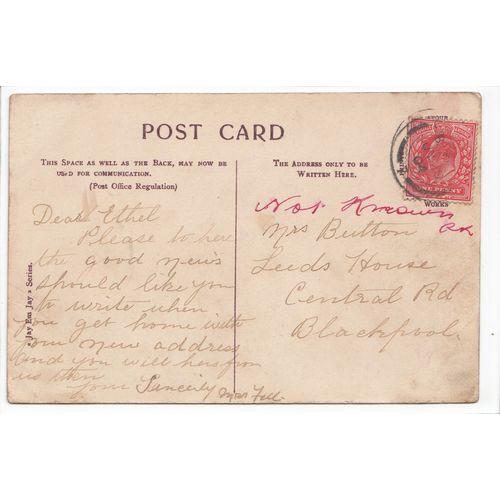 POST CARD
THIS SPACE AS WELL AS THE BACK, MAY NOW BE
USED FOR COMMUNICATION.
(Post Office Regulation)
Dear Ethel
Please to here
the good news
should like you
to write when
you get home with
your new address
and you will hers from
us then
your Sincerly Mrs Fell
Jay Em Jay Series.
THE ADDRESS ONLY TO BE
WRITTEN HERE.
Not Known
Mrs Button
Leeds House
Central Rd
Blackpool
ONE PENNY
WORKS